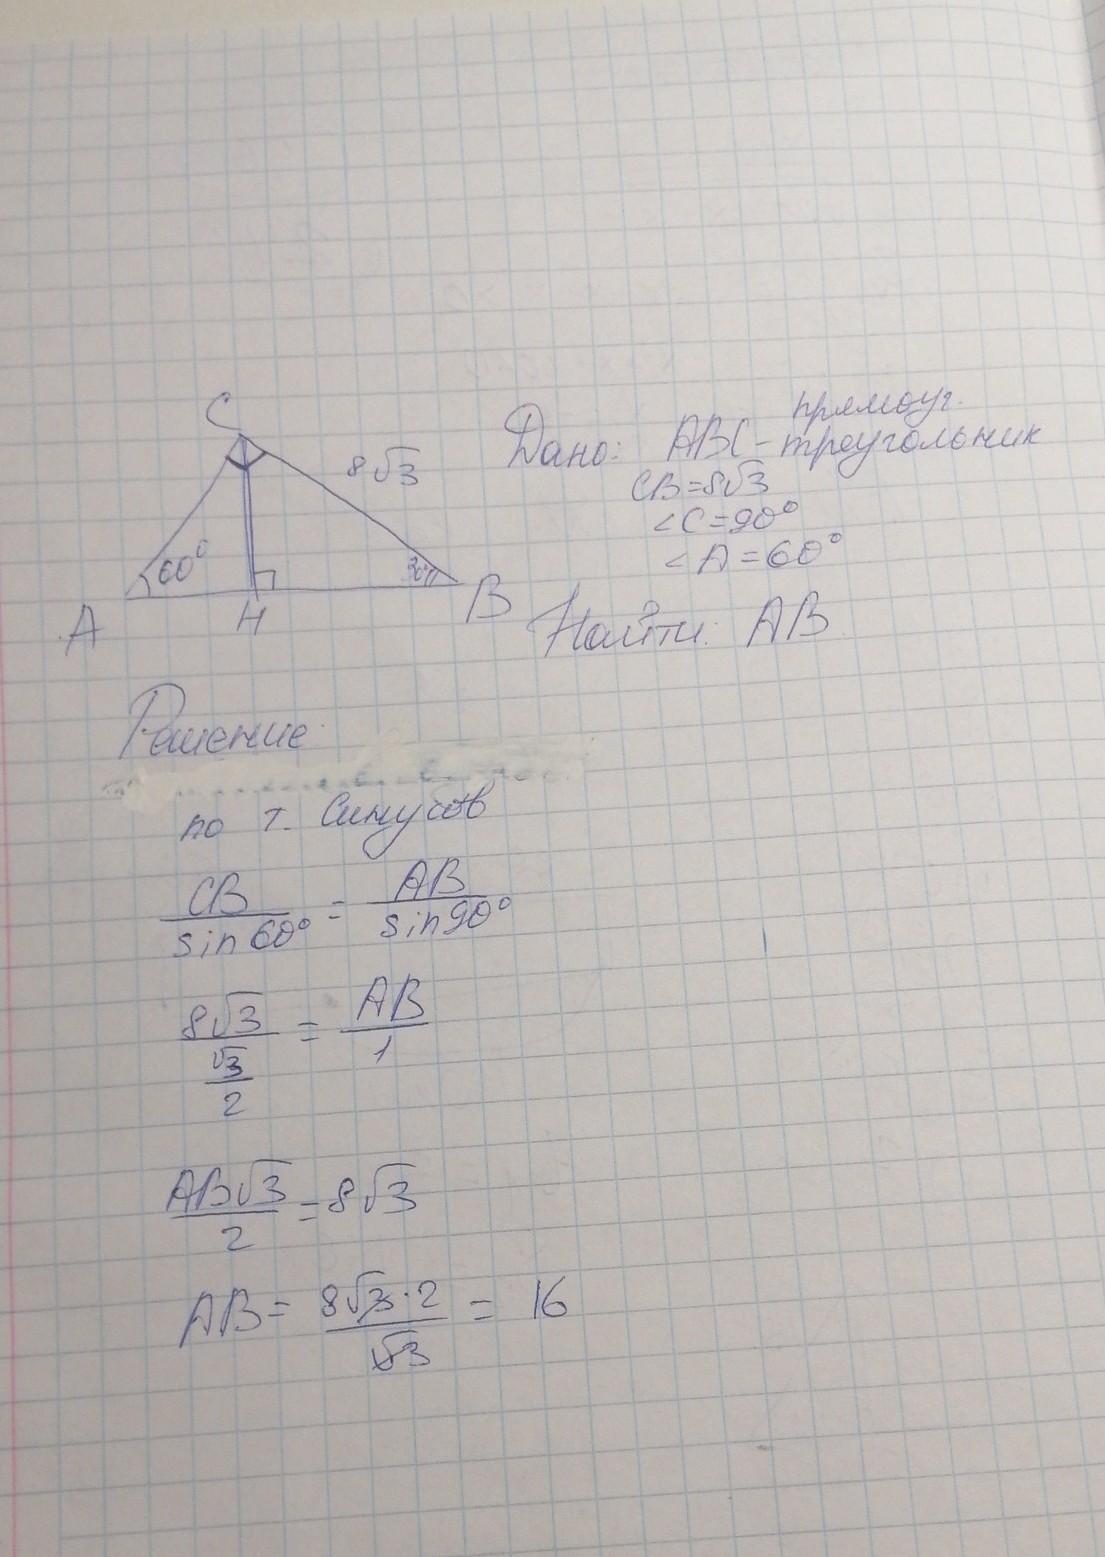 C
8√3
60°
30°
A
H
B
прямоуг.
Дано: ABC - треугольник
CB=8√3
∠C=90°
∠A=60°
Найти: AB
Решение
по т. Синусов
CB/sin60° = AB/sin90°
8√3/(√3/2) = AB/1
AB√3/2 = 8√3
AB = 8√3·2/√3 = 16